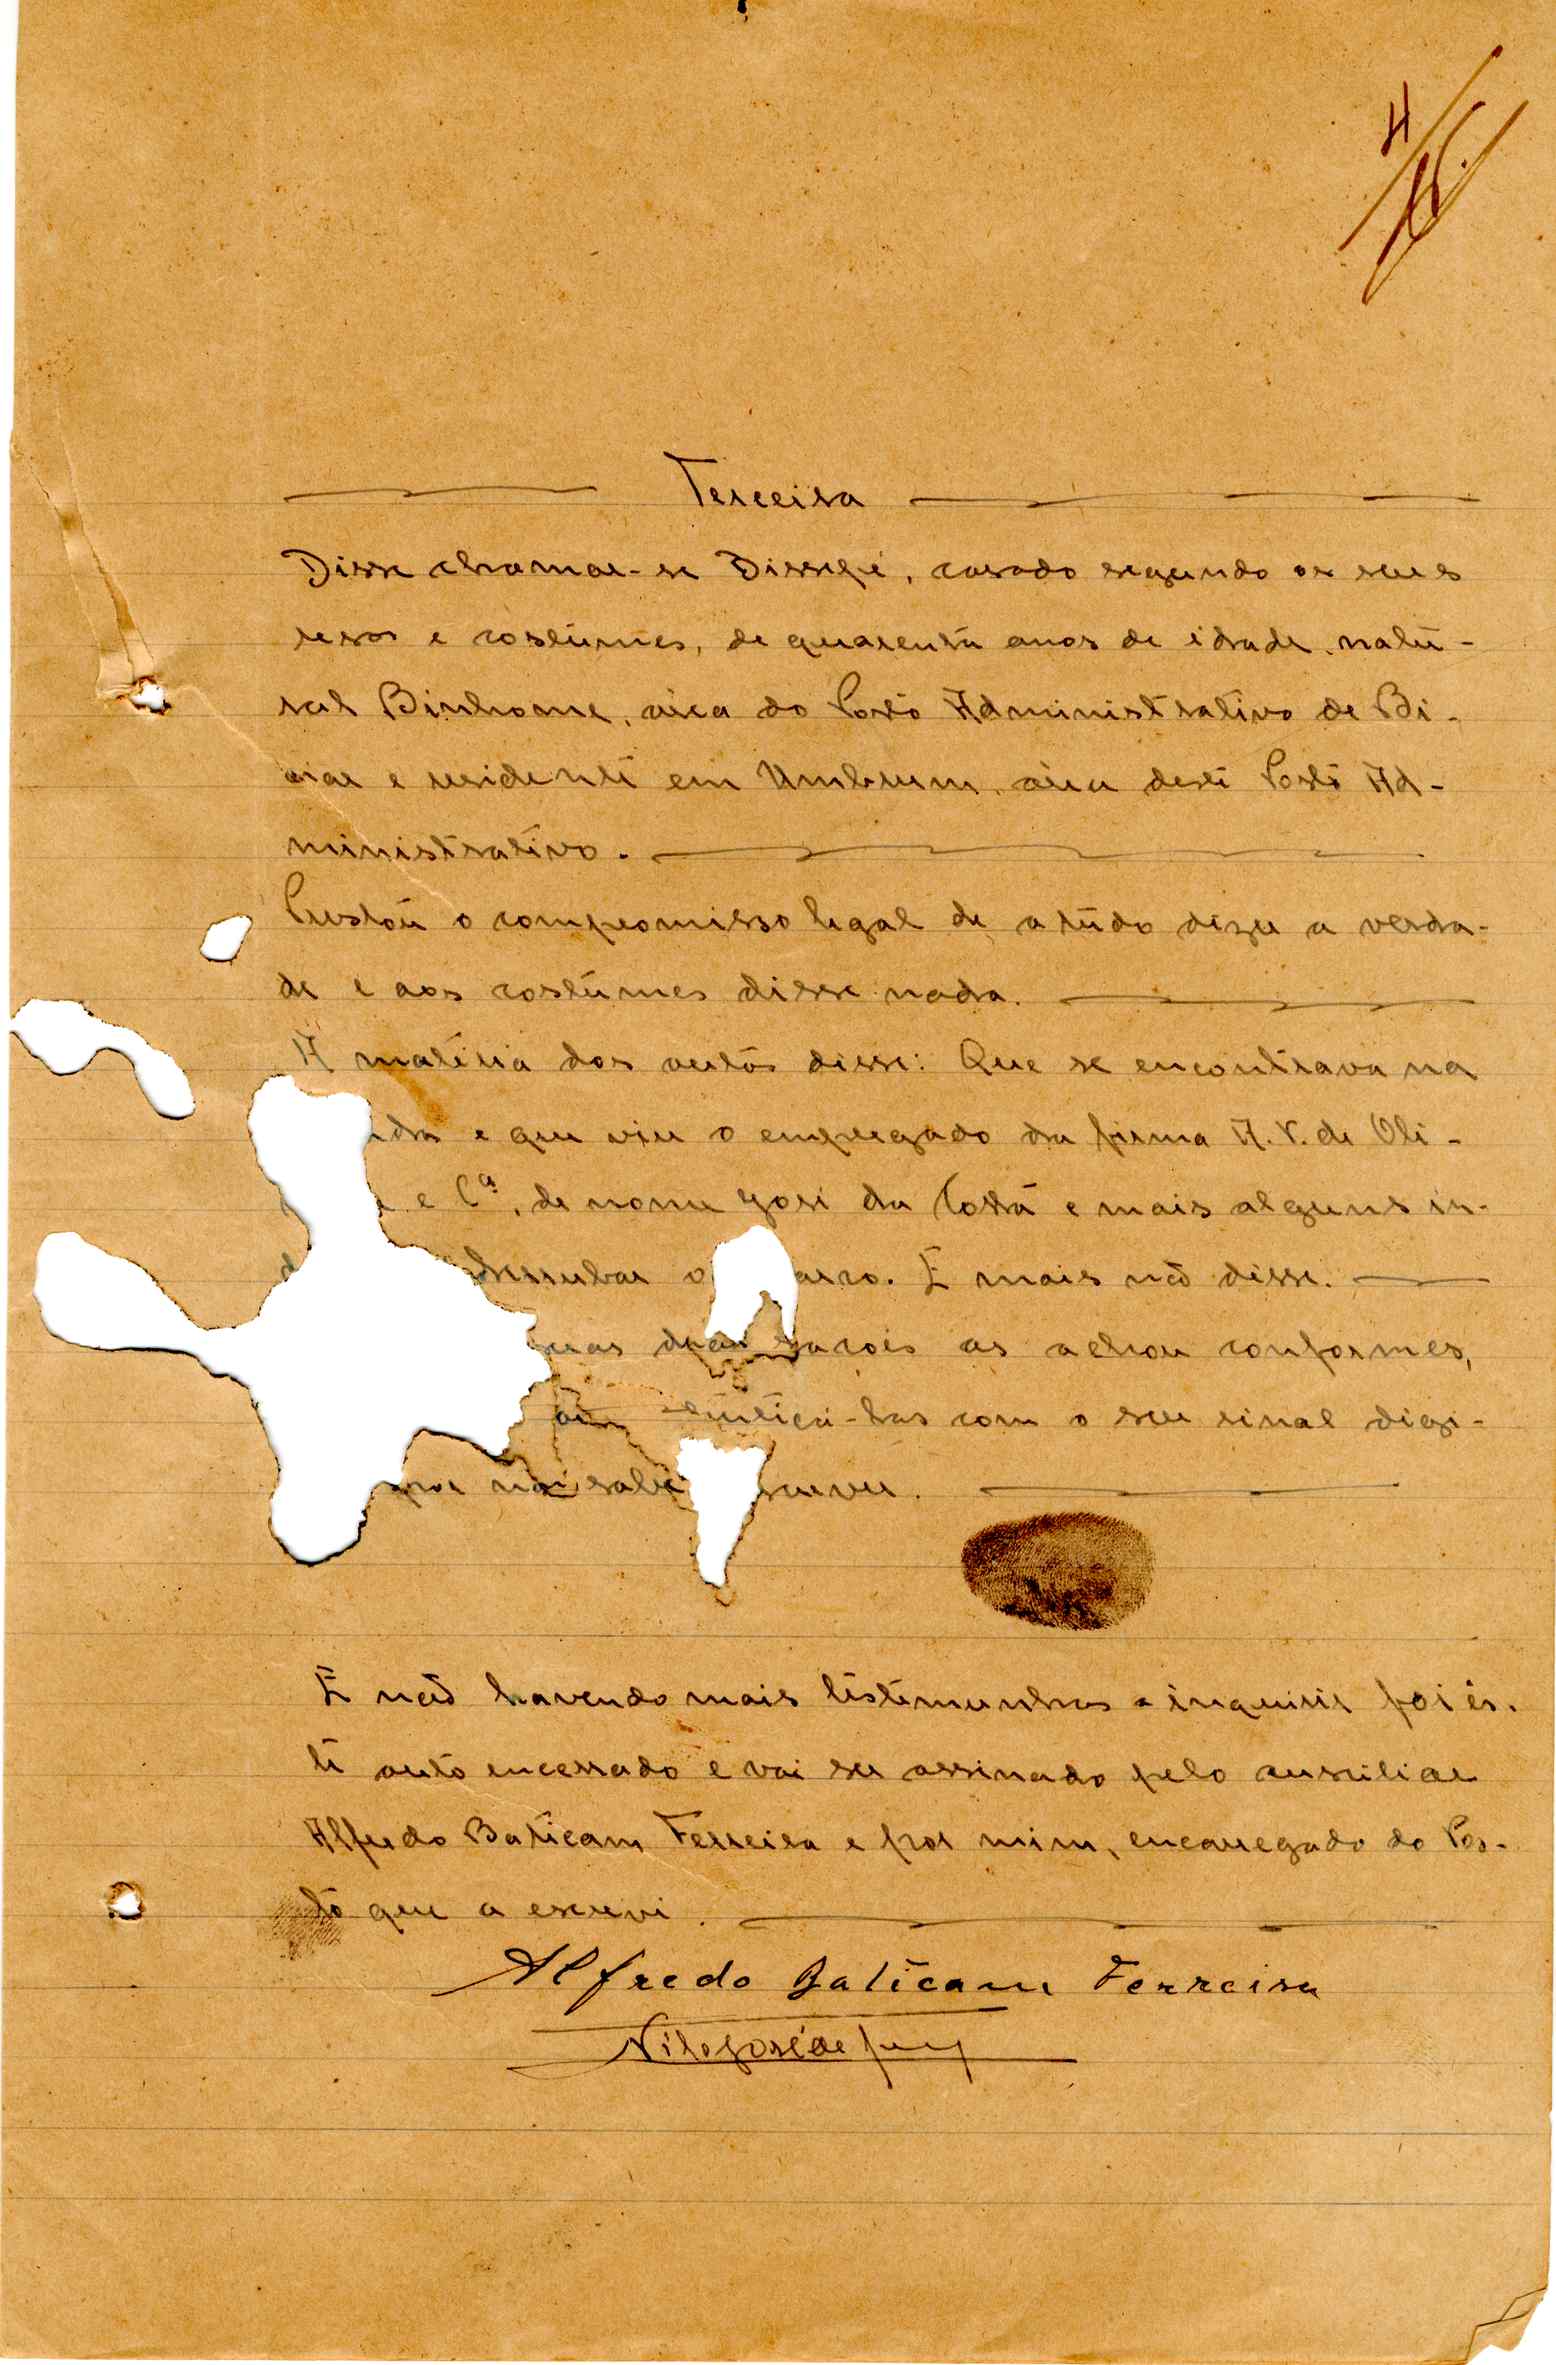 4
Terceira
Disse chamar-se Dissefé, casado segundo os seus
usos e costumes, de quarenta anos de idade, natu-
ral Binhome, área do Posto Administrativo de Bi-
and e residente em Umbrum, área deste Posto Ad-
ministrativo.
Prestou o compromisso legal de a tudo dizer a verda-
de e aos costumes disse nada.
A matéria dos autos disse: Que se encontrava na
e que viu o empregado da firma A.V. de Oli-
e Cª, de nome José da Costa e mais alguns in-
derrubar o arco. E mais não disse.
as achou conformes,
-las com o seu sinal digi-
por não saber
E não havendo mais testemunhas a inquirir foi ês-
te auto encerrado e vai ser assinado pelo auxiliar
Alfredo Baticam Ferreira e por mim, encarregado do Pos-
to que a escrevi.
Alfredo Baticam Ferreira
Nilo José de